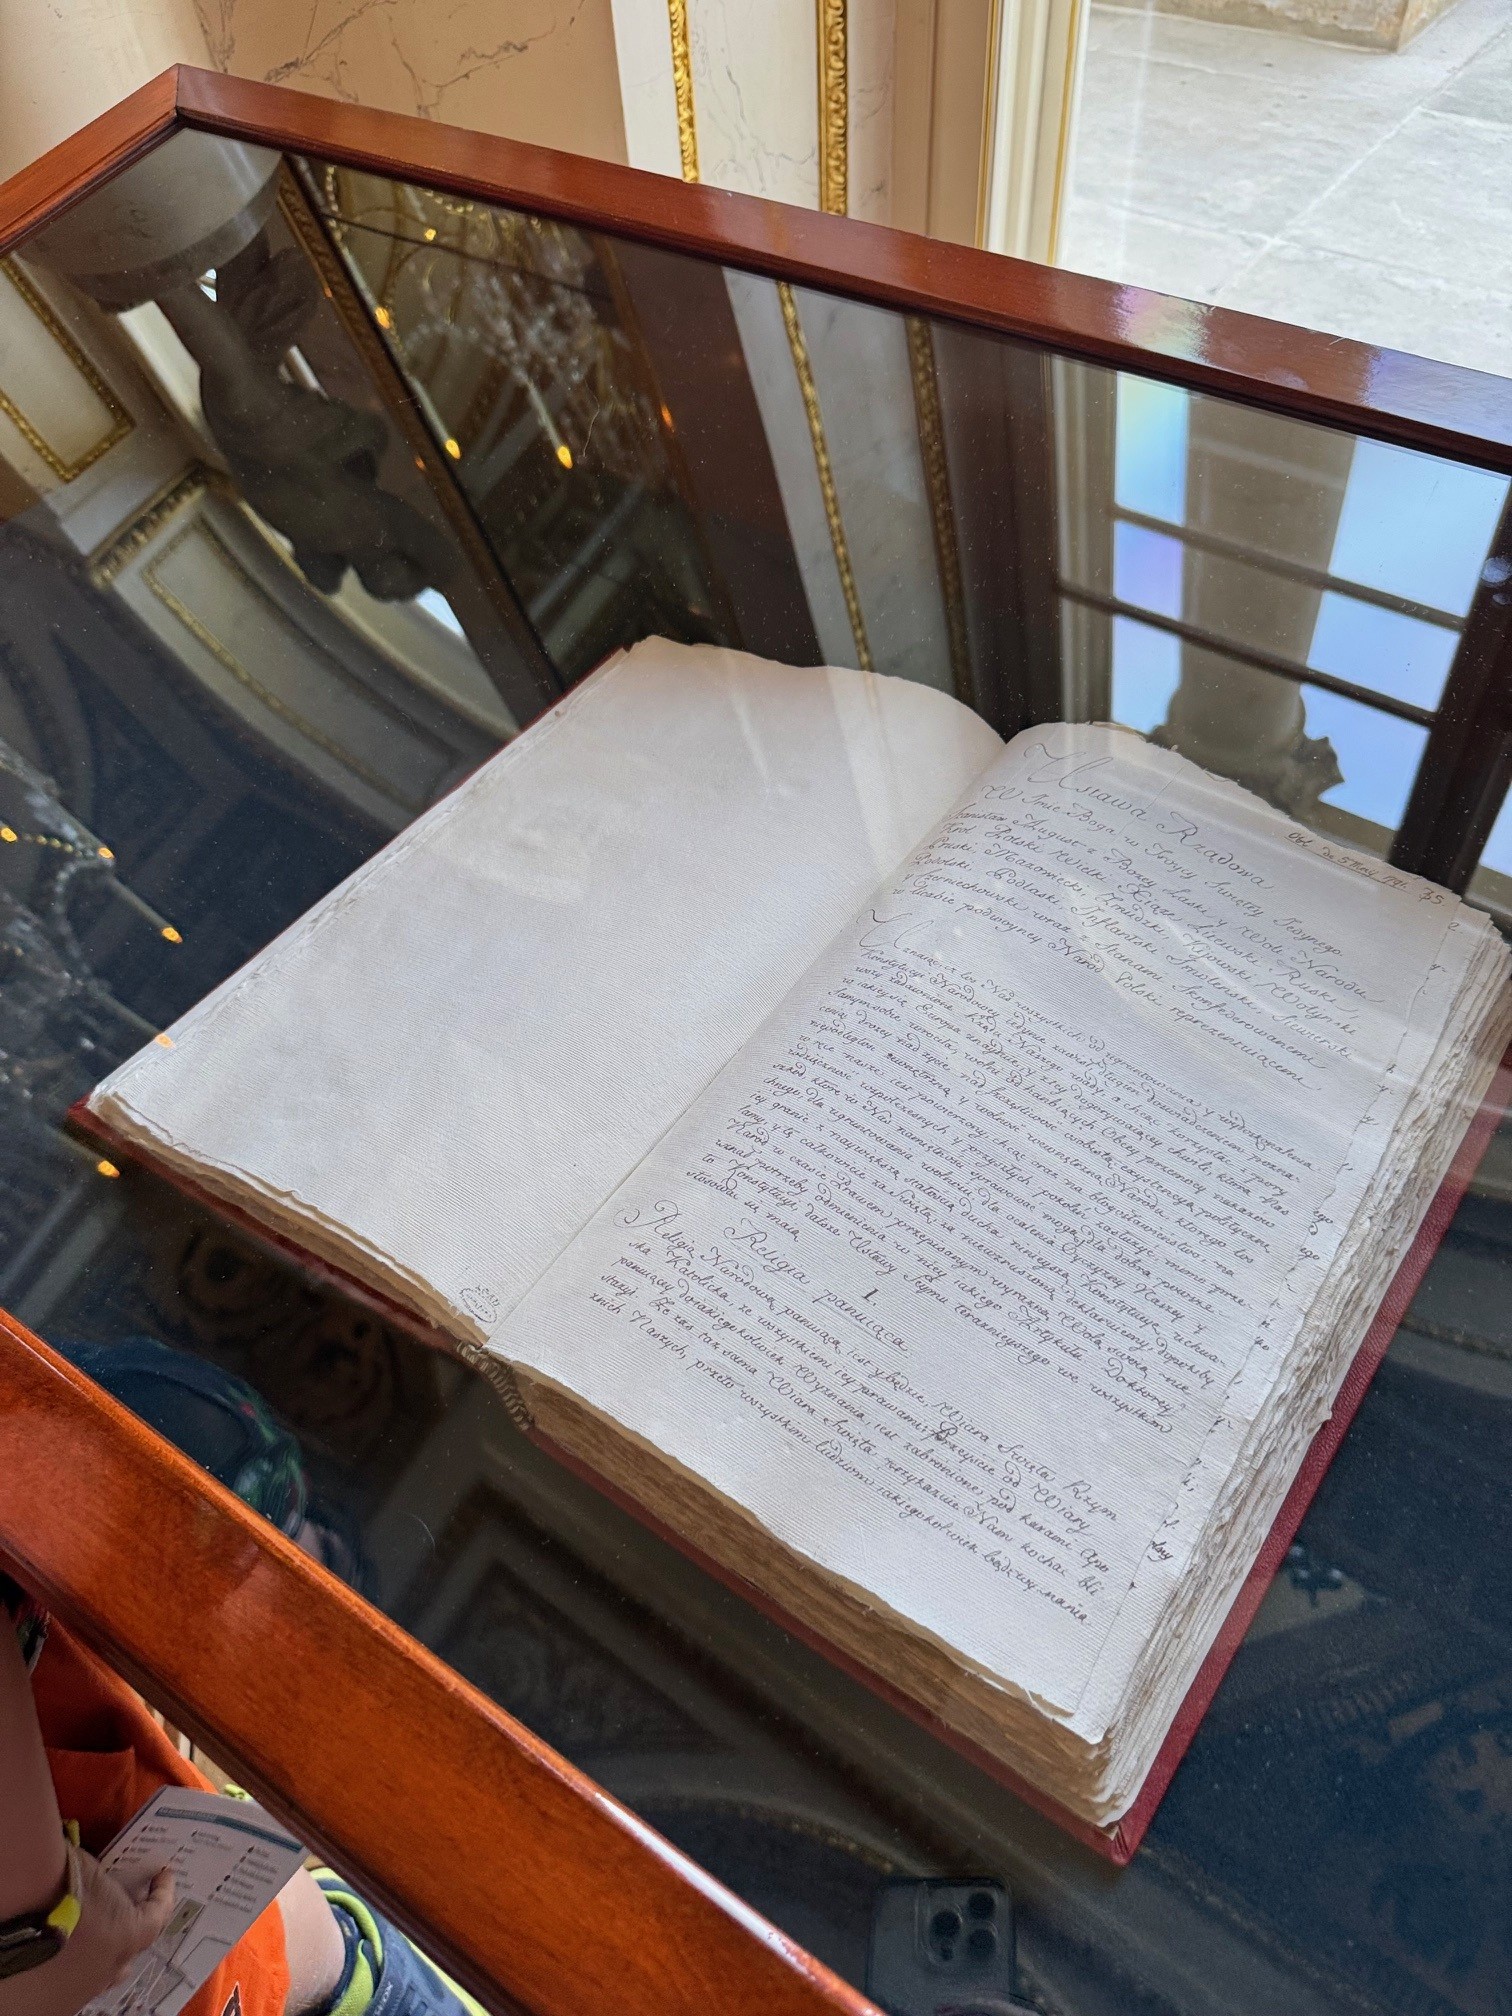 Obl. de 5 Maij 1791. 35
Ustawa Rządowa
W Imie Boga, w Tróycy Swiętey Jedynego.
Stanisław August z Bożey Łaski y Woli Narodu
Krol Polski Wielki Xiąże Litewski, Ruski,
Pruski, Mazowiecki, Zmudzki, Kijowski, Wołyński
Podolski, Podlaski, Inflantski, Smolenski, Siewierski
y Czerniechowski wraz z Stanami Skonfederowanemi
w liczbie podwoyney Narod Polski reprezentuiącemi
Uznaiąc iż los Nas wszystkich od ugruntowania y wydoskonalenia
Konstytucyi Narodowey iedynie zawisł, długim doswiadczeniem pozna-
wszy zadawnione Rządu Naszego wady, a chcąc korzystać z pory
w iakiey się Europa znayduie, y z tey dogorywaiącey chwili, która Nas
samym sobie wrociła, wolni od hanbiących Obcey przemocy nakazow
ceniąc drożey nad życie, nad szczęśliwość osobistą exystencyą polityczną
niepodległość zewnętrzną y wolność wewnętrzną Narodu, ktorego los
w ręce nasze iest powierzony, chcąc oraz na błogosławieństwo, na
wdzięczność wspołczesnych y przyszłych pokoleń zasłużyć, mimo prze-
szkod, ktore w Nas namiętności sprawować mogą, dla dobra powsze-
chnego, dla ugruntowania wolności, dla ocalenia Oyczyzny Naszey y
iey granic z naywiększą stałością ducha ninieyszą Konstytucyę uchwa-
lamy, y tę całkowicie za Swiętą, za niewzruszoną deklaruiemy, dopokiby
Narod w czasie Prawem przepisanym, wyraźną Wolą swoią nie
uznał potrzeby odmienienia w niey iakiego Artykułu. Do ktorey
to Konstytucyi dalsze Ustawy Seymu teraźnieyszego we wszystkim
stosować się maią.
1.
Religia panuiąca.
Religią Narodową panuiącą iest y będzie, Wiara Swięta Rzym-
ska Katolicka, ze wszystkiemi iey prawami; Przeyście od Wiary
panuiącey do iakiegokolwiek Wyznania, iest zabronione pod karami Apo-
stazyi. Że zas taż sama Wiara Swięta, przykazuie Nam kochać bli-
znich Naszych, przeto wszystkim ludziom iakiegokolwiek bądź wyznania